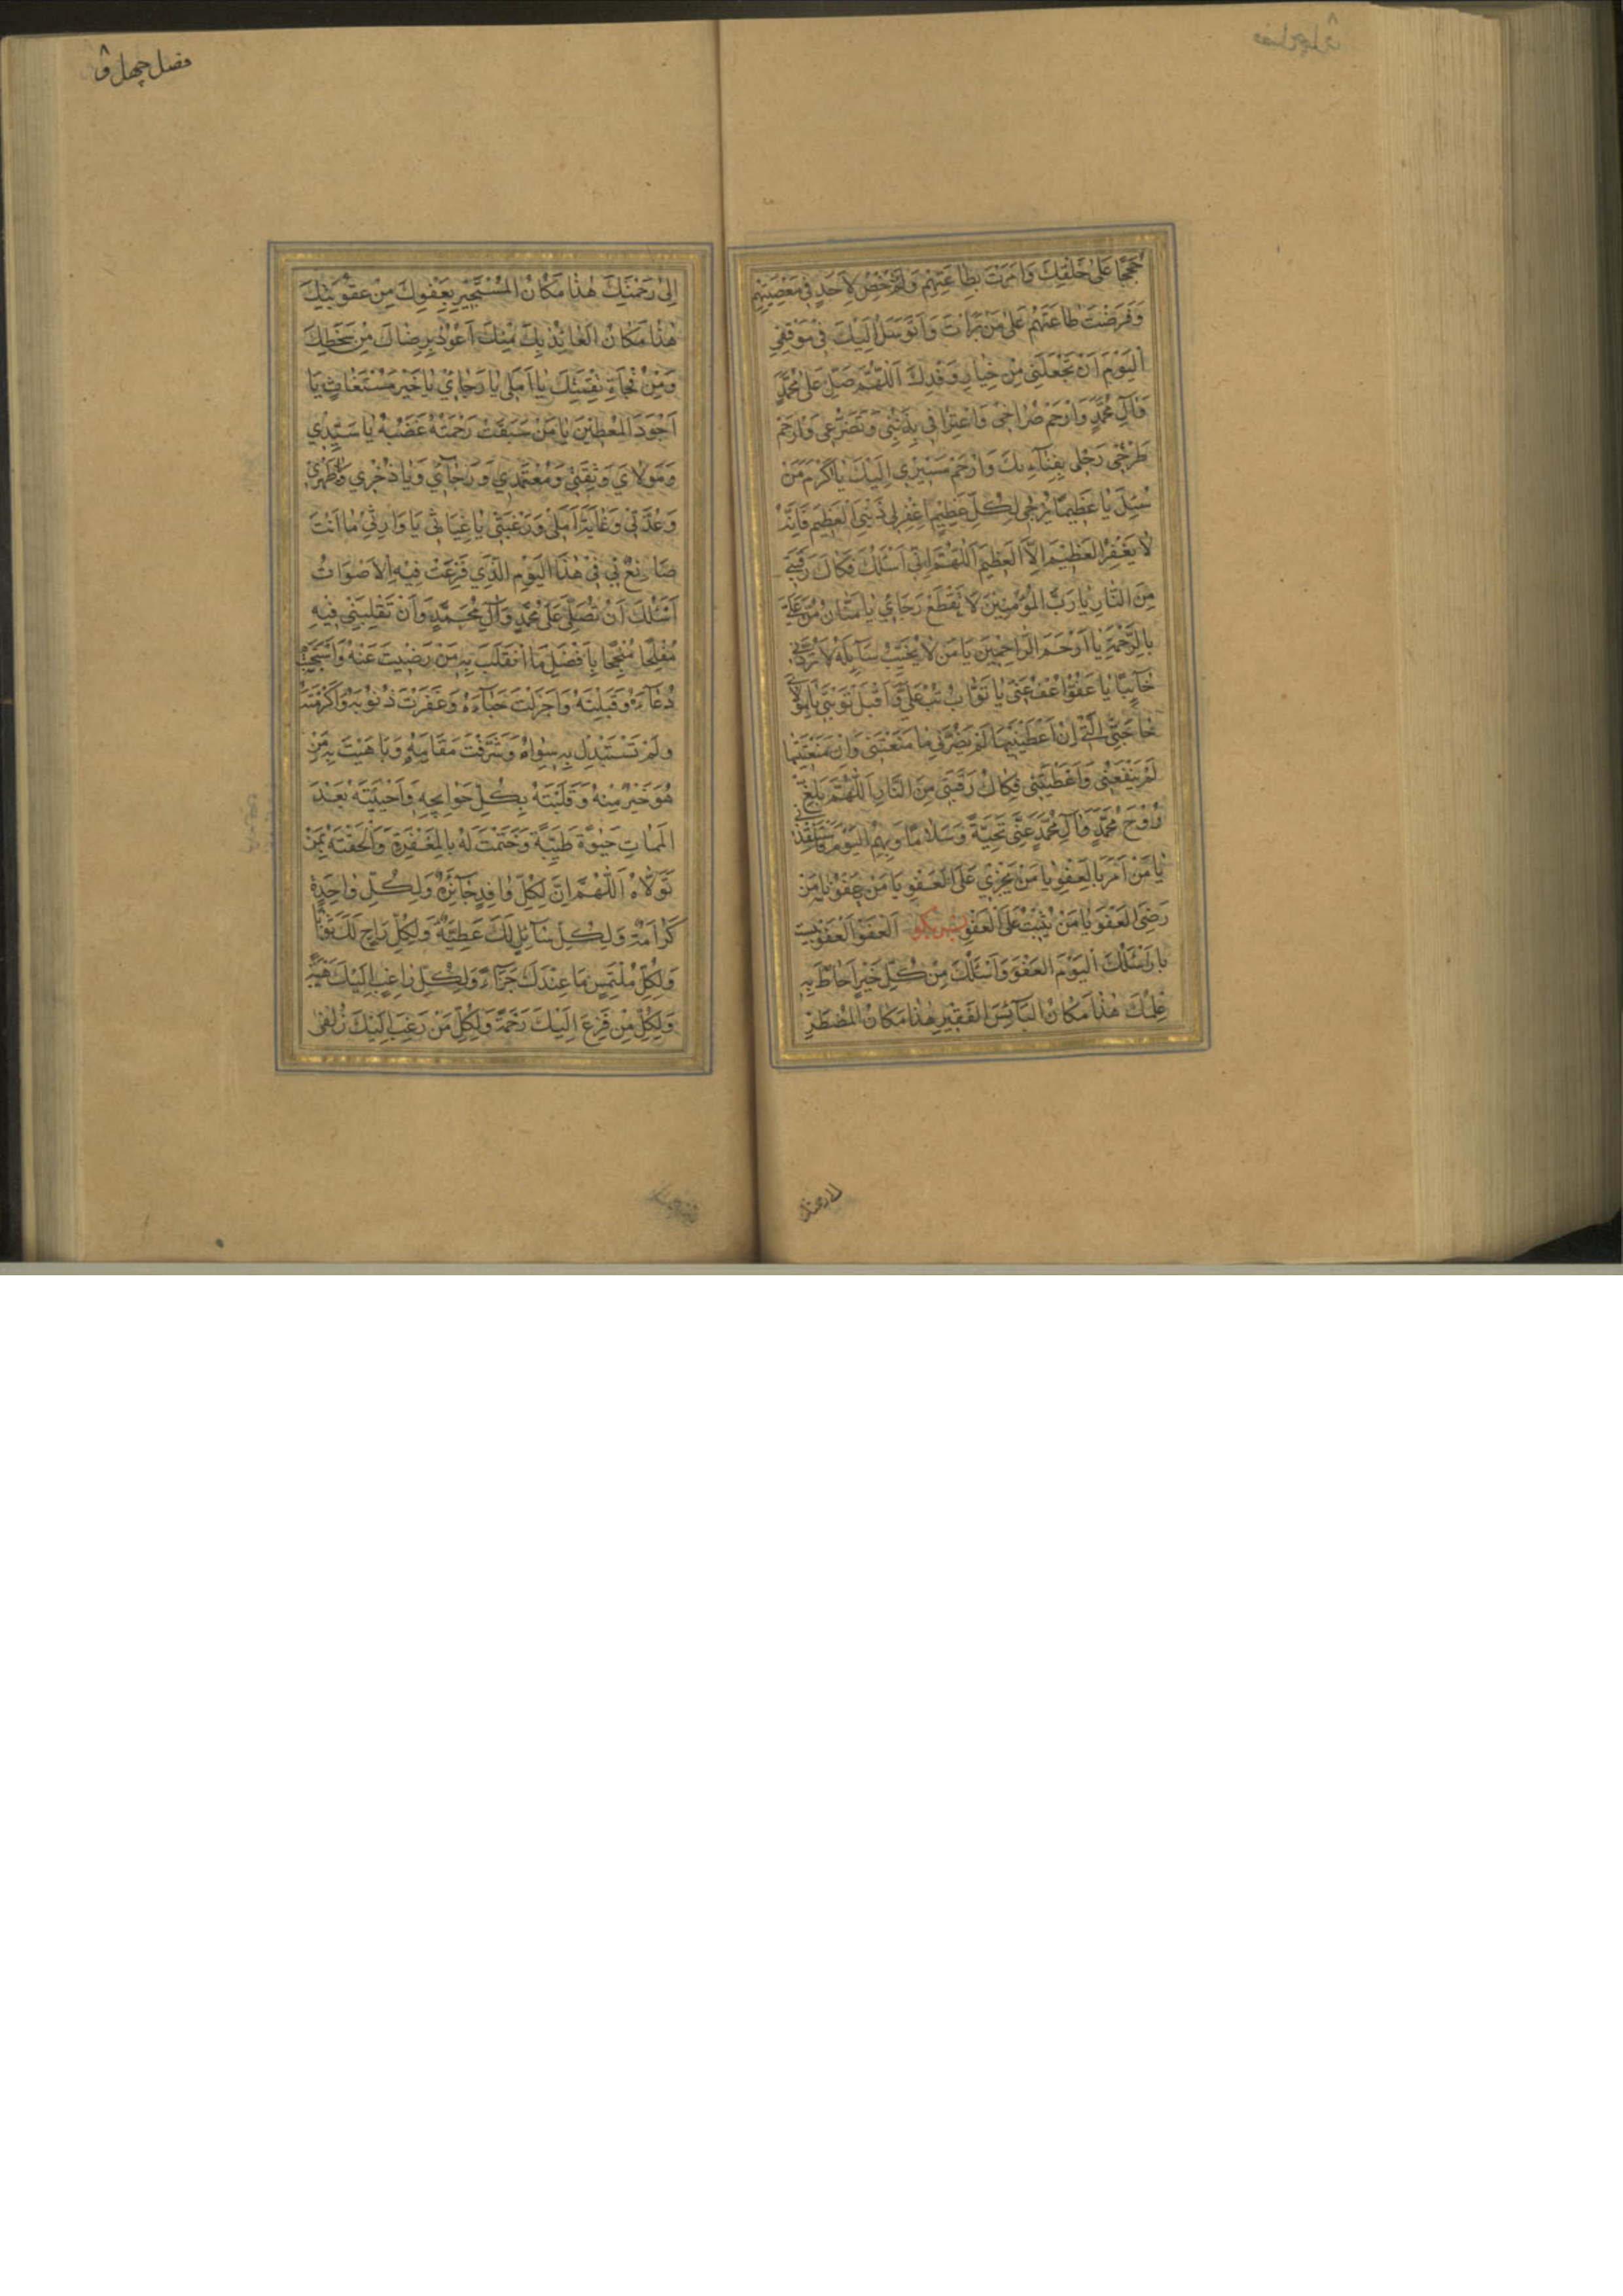 حُجَجًا عَلىٰ خَلْقِكَ وَاَمَرْتَ بِطاعَتِهِمْ وَلَمْ تُرَخِّصْ لِاَحَدٍ فى مَعْصِيَتِهِمْ
وَفَرَضْتَ طاعَتَهُمْ عَلىٰ مَنْ بَرَاْتَ وَاَتَوَسَّلُ اِلَيْكَ فى مَوْقِفِى
اَلْيَوْمَ اَنْ تَجْعَلَنى مِنْ خِيارِ وَفْدِكَ اَللّٰهُمَّ صَلِّ عَلىٰ مُحَمَّدٍ
وَآلِ مُحَمَّدٍ وَارْحَمْ صُراخى وَاعْتِرافى بِذَنْبى وَتَضَرُّعى وَارْحَمْ
طَرْحى رَحْلى بِفِنآءِكَ وَارْحَمْ مَسيرى اِلَيْكَ يا اَكْرَمَ مَنْ
سُئِلَ يا عَظيمًا يُرْجىٰ لِكُلِّ عَظيمٍ اغْفِرْلى ذَنْبِىَ الْعَظيمَ فَاِنَّهُ
لا يَغْفِرُ الْعَظيمَ اِلَّا الْعَظيمُ اَللّٰهُمَّ اِنّى اَسْئَلُكَ فَكاكَ رَقَبَتى
مِنَ النّارِ يا رَبَّ الْمُؤْمِنينَ لا تَقْطَعْ رَجائى يا مَنّانُ مُنَّ عَلَىَّ
بِالرَّحْمَةِ يا اَرْحَمَ الرّاحِمينَ يا مَنْ لا يُخَيِّبُ سآئِلَهُ لا تَرُدَّنى
خآئِبًا يا عَفُوُّ اعْفُ عَنّى يا تَوّابُ تُبْ عَلَىَّ وَاقْبَلْ تَوْبَتى يا مَوْلاىَ
حاجَتِى الَّتى اِنْ اَعْطَيْتَنيها لَمْ يَضُرَّنى ما مَنَعْتَنى وَاِنْ مَنَعْتَنيها
لَمْ يَنْفَعْنى ما اَعْطَيْتَنى فَكاكُ رَقَبَتى مِنَ النّارِ اَللّٰهُمَّ بَلِّغْ
رُوحَ مُحَمَّدٍ وَآلِ مُحَمَّدٍ عَنّى تَحِيَّةً وَسَلامًا وَبِهِمُ الْيَوْمَ فَاسْتَنْقِذْنى
يا مَنْ اَمَرَ بِالْعَفْوِ يا مَنْ يَجْزى عَلَى الْعَفْوِ يا مَنْ يَعْفُو يا مَنْ
رَضِىَ الْعَفْوَ يا مَنْ يُثيبُ عَلَى الْعَفْوِ پس بگو اَلْعَفْوَ الْعَفْوَ بيست
بار اَسْئَلُكَ الْيَوْمَ الْعَفْوَ وَاَسْئَلُكَ مِنْ كُلِّ خَيْرٍ اَحاطَ بِهِ
عِلْمُكَ هٰذا مَكانُ الْبآئِسِ الْفَقيرِ هٰذا مَكانُ الْمُضْطَرِّ
فصل چهل و
اِلىٰ رَحْمَتِكَ هٰذا مَكانُ الْمُسْتَجيرِ بِعَفْوِكَ مِنْ عُقُوبَتِكَ
هٰذا مَكانُ الْعائِذِ بِكَ مِنْكَ اَعُوذُ بِرِضاكَ مِنْ سَخَطِكَ
وَمِنْ فُجآءَةِ نَقِمَتِكَ يا اَمَلى يا رَجائى يا خَيْرَ مُسْتَغاثٍ يا
اَجْوَدَ الْمُعْطينَ يا مَنْ سَبَقَتْ رَحْمَتُهُ غَضَبَهُ يا سَيِّدى
وَمَوْلاىَ وَثِقَتى وَمُعْتَمَدى وَرَجآئى وَيا ذُخْرى وَظَهْرى
وَعُدَّتى وَغايَةَ اَمَلى وَرَغْبَتى يا غِياثى يا وارِثى ما اَنْتَ
صانِعٌ بى فى هٰذَا الْيَوْمِ الَّذى فَزِعَتْ فيهِ الْاَصْواتُ
اَسْئَلُكَ اَنْ تُصَلِّىَ عَلىٰ مُحَمَّدٍ وَآلِ مُحَمَّدٍ وَاَنْ تَقْلِبَنى فيهِ
مُفْلِحًا مُنْجِحًا بِاَفْضَلِ مَا انْقَلَبَ بِهِ مَنْ رَضيتَ عَنْهُ وَاسْتَجَبْتَ
دُعآءَهُ وَقَبِلْتَهُ وَاَجْزَلْتَ حَبآءَهُ وَغَفَرْتَ ذُنُوبَهُ وَاَكْرَمْتَهُ
وَلَمْ تَسْتَبْدِلْ بِهِ سِواهُ وَشَرَّفْتَ مَقامَهُ وَباهَيْتَ بِهِ مَنْ
هُوَ خَيْرٌ مِنْهُ وَقَلَبْتَهُ بِكُلِّ حَوائِجِهِ وَاَحْيَيْتَهُ بَعْدَ
الْمَماتِ حَيٰوةً طَيِّبَةً وَخَتَمْتَ لَهُ بِالْمَغْفِرَةِ وَاَلْحَقْتَهُ بِمَنْ
تَوَلّاهُ اَللّٰهُمَّ اِنَّ لِكُلِّ وافِدٍ جآئِزَةً وَلِكُلِّ واحِدَةٍ
كَرامَةً وَلِكُلِّ سآئِلٍ لَكَ عَطِيَّةً وَلِكُلِّ راجٍ لَكَ ثَوابًا
وَلِكُلِّ مُلْتَمِسٍ ما عِنْدَكَ جَزآءً وَلِكُلِّ راغِبٍ اِلَيْكَ هِبَةً
وَلِكُلِّ مَنْ فَزِعَ اِلَيْكَ رَحْمَةً وَلِكُلِّ مَنْ رَغِبَ اِلَيْكَ زُلْفىٰ